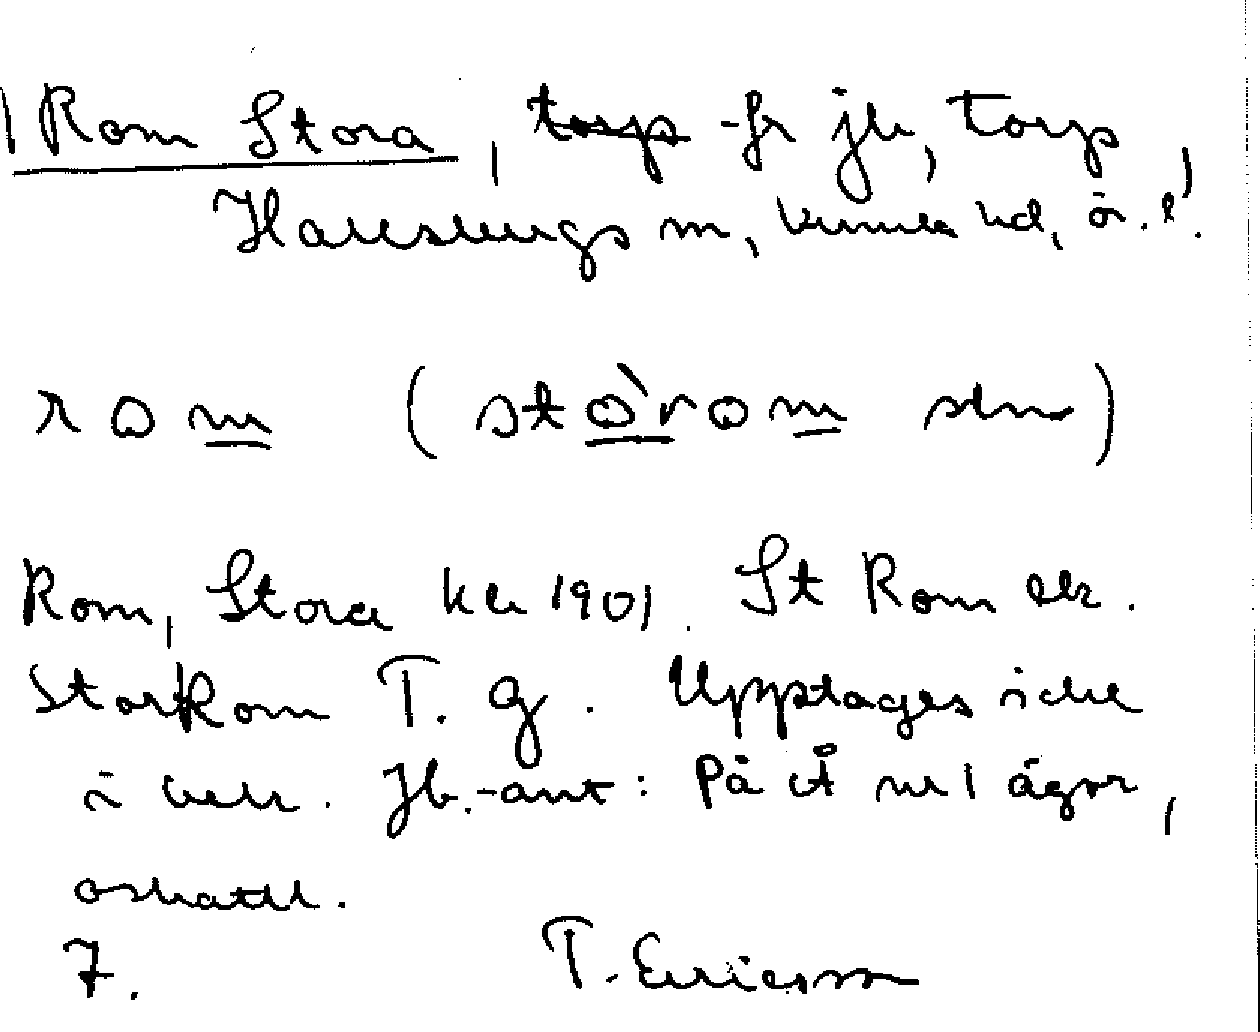 Rom Stora, torp fr jb, torp
Hallsbergs sn, Kumla hd, ör. l.
rom (stòrom stn)
Rom, Stora kb 1901. St Rom ek.
StorRom T. g. Upptages icke
i beskr. Jb.-ant: På Å nr 1 ägor,
oskattl.
7. T. Ericsson